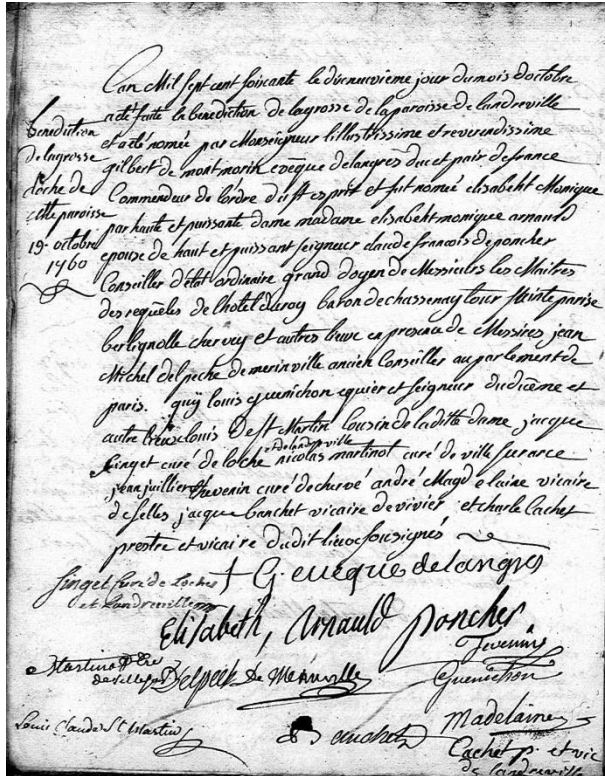 Lan Mil sept cent soixante le dixneuvieme jour du mois doctobre
a été faite la benediction de lagrosse de la paroisse de landreville
et a été nomée par Monseigneur lillustrissime et reverendissime
gilbert de montmorin eveque delangres duc et pair de france
Commendeur de lordre du st esprit et fut nomée elisabeht Monique
par haute et puissante dame madame elisabeht monique arnauld
epouse de haut et puissant seigneur claude francois deponcher
Conseiller détat ordinaire grand doyen de Messieurs les Maitres
des requêtes de lhotel du roy baron de chassenay tour st einte parise
bertignolle chervey et autres lieux en presence de Messires jean
Michel delpeche de merinville ancien Conseiller au parlement de
paris. guÿ louis guenichon equier et seigneur dudicême et
autre lieux louis De st Martin cousin de laditte dame jacque
finget curé de loche et de landreville nicolas martinot curé de ville sur arce
jean juillier thevenin curé de chervé andré Magdelaine vicaire
de selles jacque banchet vicaire de vivier et charle Cachet
prestre et vicaire dudit lieux soussignés
benediction
de lagrosse
cloche de
cette paroisse
19. octobre
1760
finget Curé de Loches
et Landreville
† G. eveque de langres
Elisabeth, Arnauld Poncher
Tevenin
Martinot
de ville
Delpech De Merinville
Guenichon
Louis Claude St Martin
Banchet
Madelaine
Cachet p. et vic
de landreville